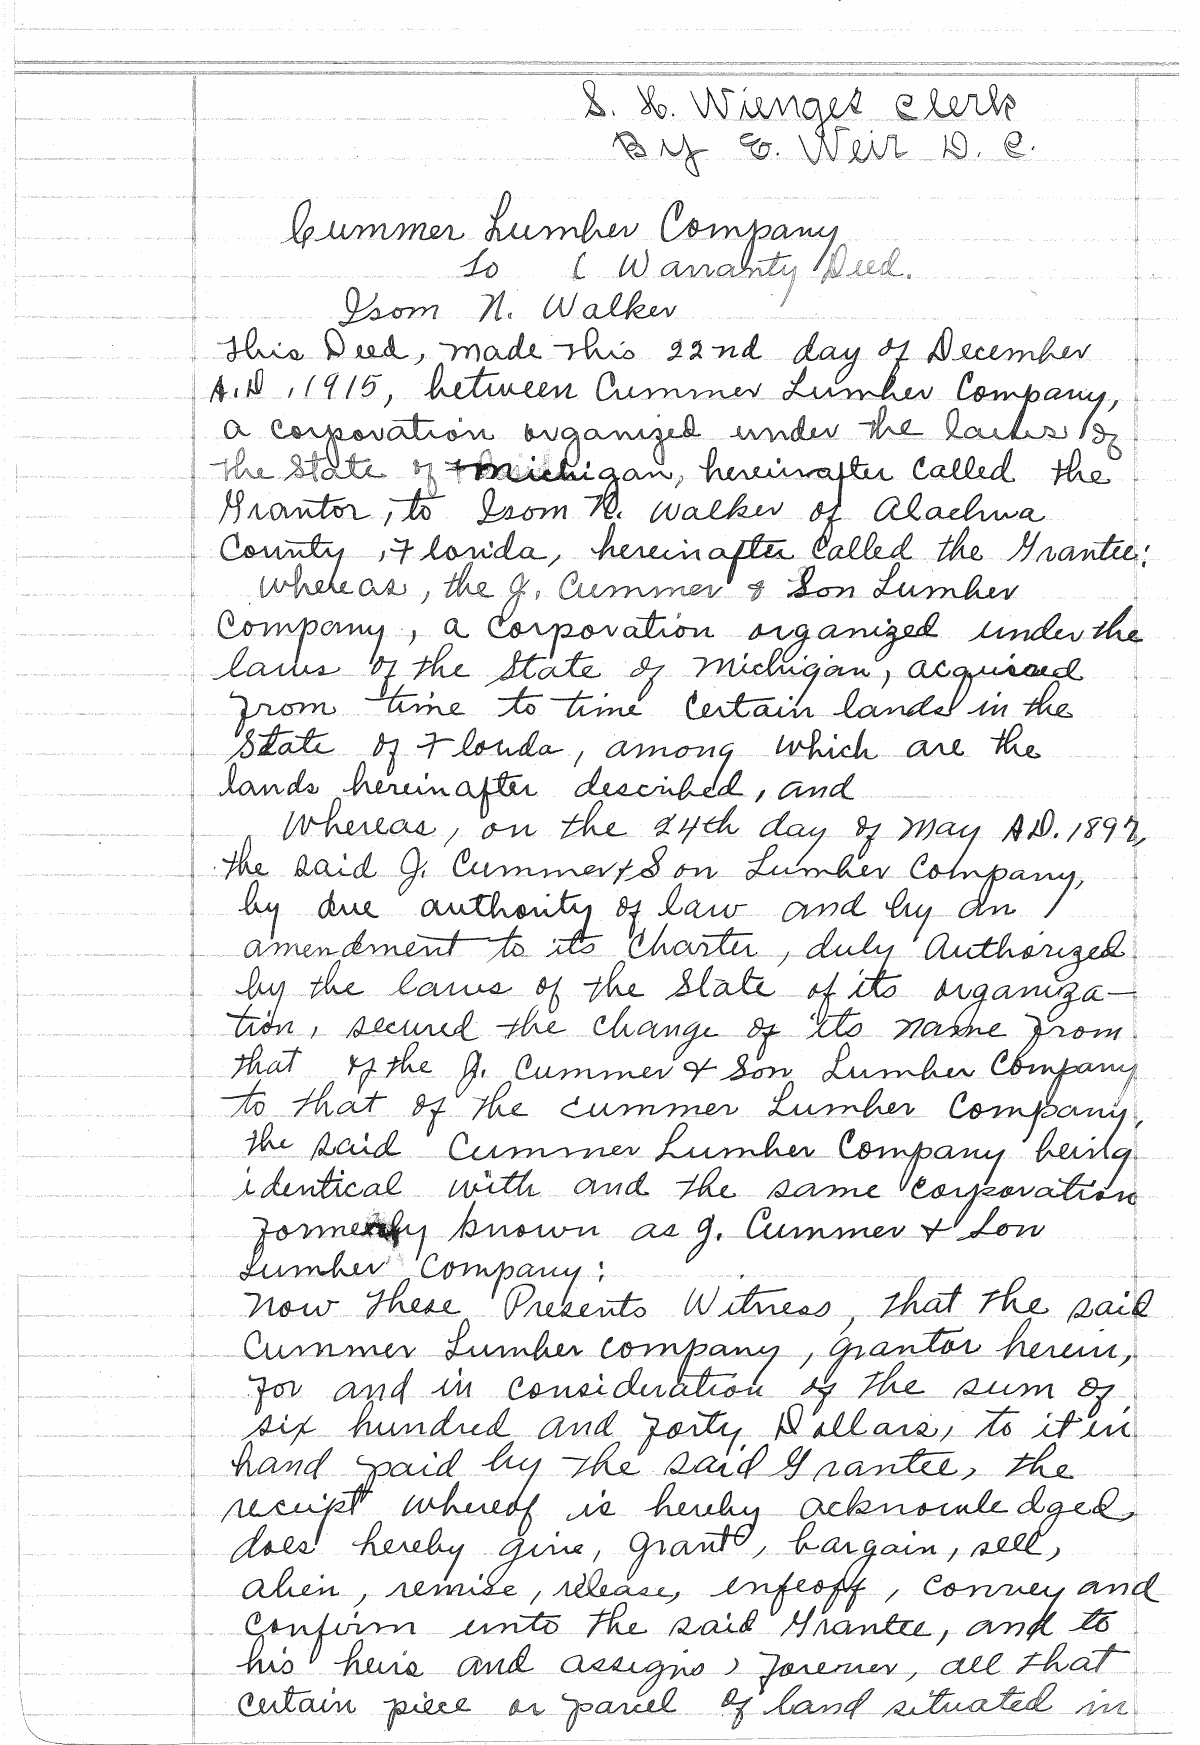 S. H. Wienges Clerk
By E. Weir D. C.
Cummer Lumber Company
To ( Warranty Deed.
Isom N. Walker
This Deed, made this 22nd day of December
A.D, 1915, between Cummer Lumber Company,
a corporation organized under the laws of
the State of Michigan, hereinafter called the
Grantor, to Isom N. Walker of Alachua
County, Florida, hereinafter called the Grantee:
Whereas, the J. Cummer & Son Lumber
Company, a corporation organized under the
laws of the State of Michigan, acquired
from time to time certain lands in the
State of Florida, among which are the
lands hereinafter described, and
Whereas, on the 24th day of May A.D. 1897,
the said J. Cummer & Son Lumber Company,
by due authority of law and by an
amendment to its Charter, duly Authorized
by the laws of the State of its organiza-
tion, secured the change of its name from
that of the J. Cummer & Son Lumber Company
to that of the Cummer Lumber Company,
the said Cummer Lumber Company being
identical with and the same corporation
formerly known as J. Cummer & Son
Lumber Company:
Now These Presents Witness, that the said
Cummer Lumber company, grantor herein,
for and in consideration of the sum of
six hundred and forty Dollars, to it in
hand paid by the said Grantee, the
receipt whereof is hereby acknowledged,
does hereby give, grant, bargain, sell,
alien, remise, release, enfeoff, convey and
confirm unto the said Grantee, and to
his heirs and assigns, forever, all that
certain piece or parcel of land situated in